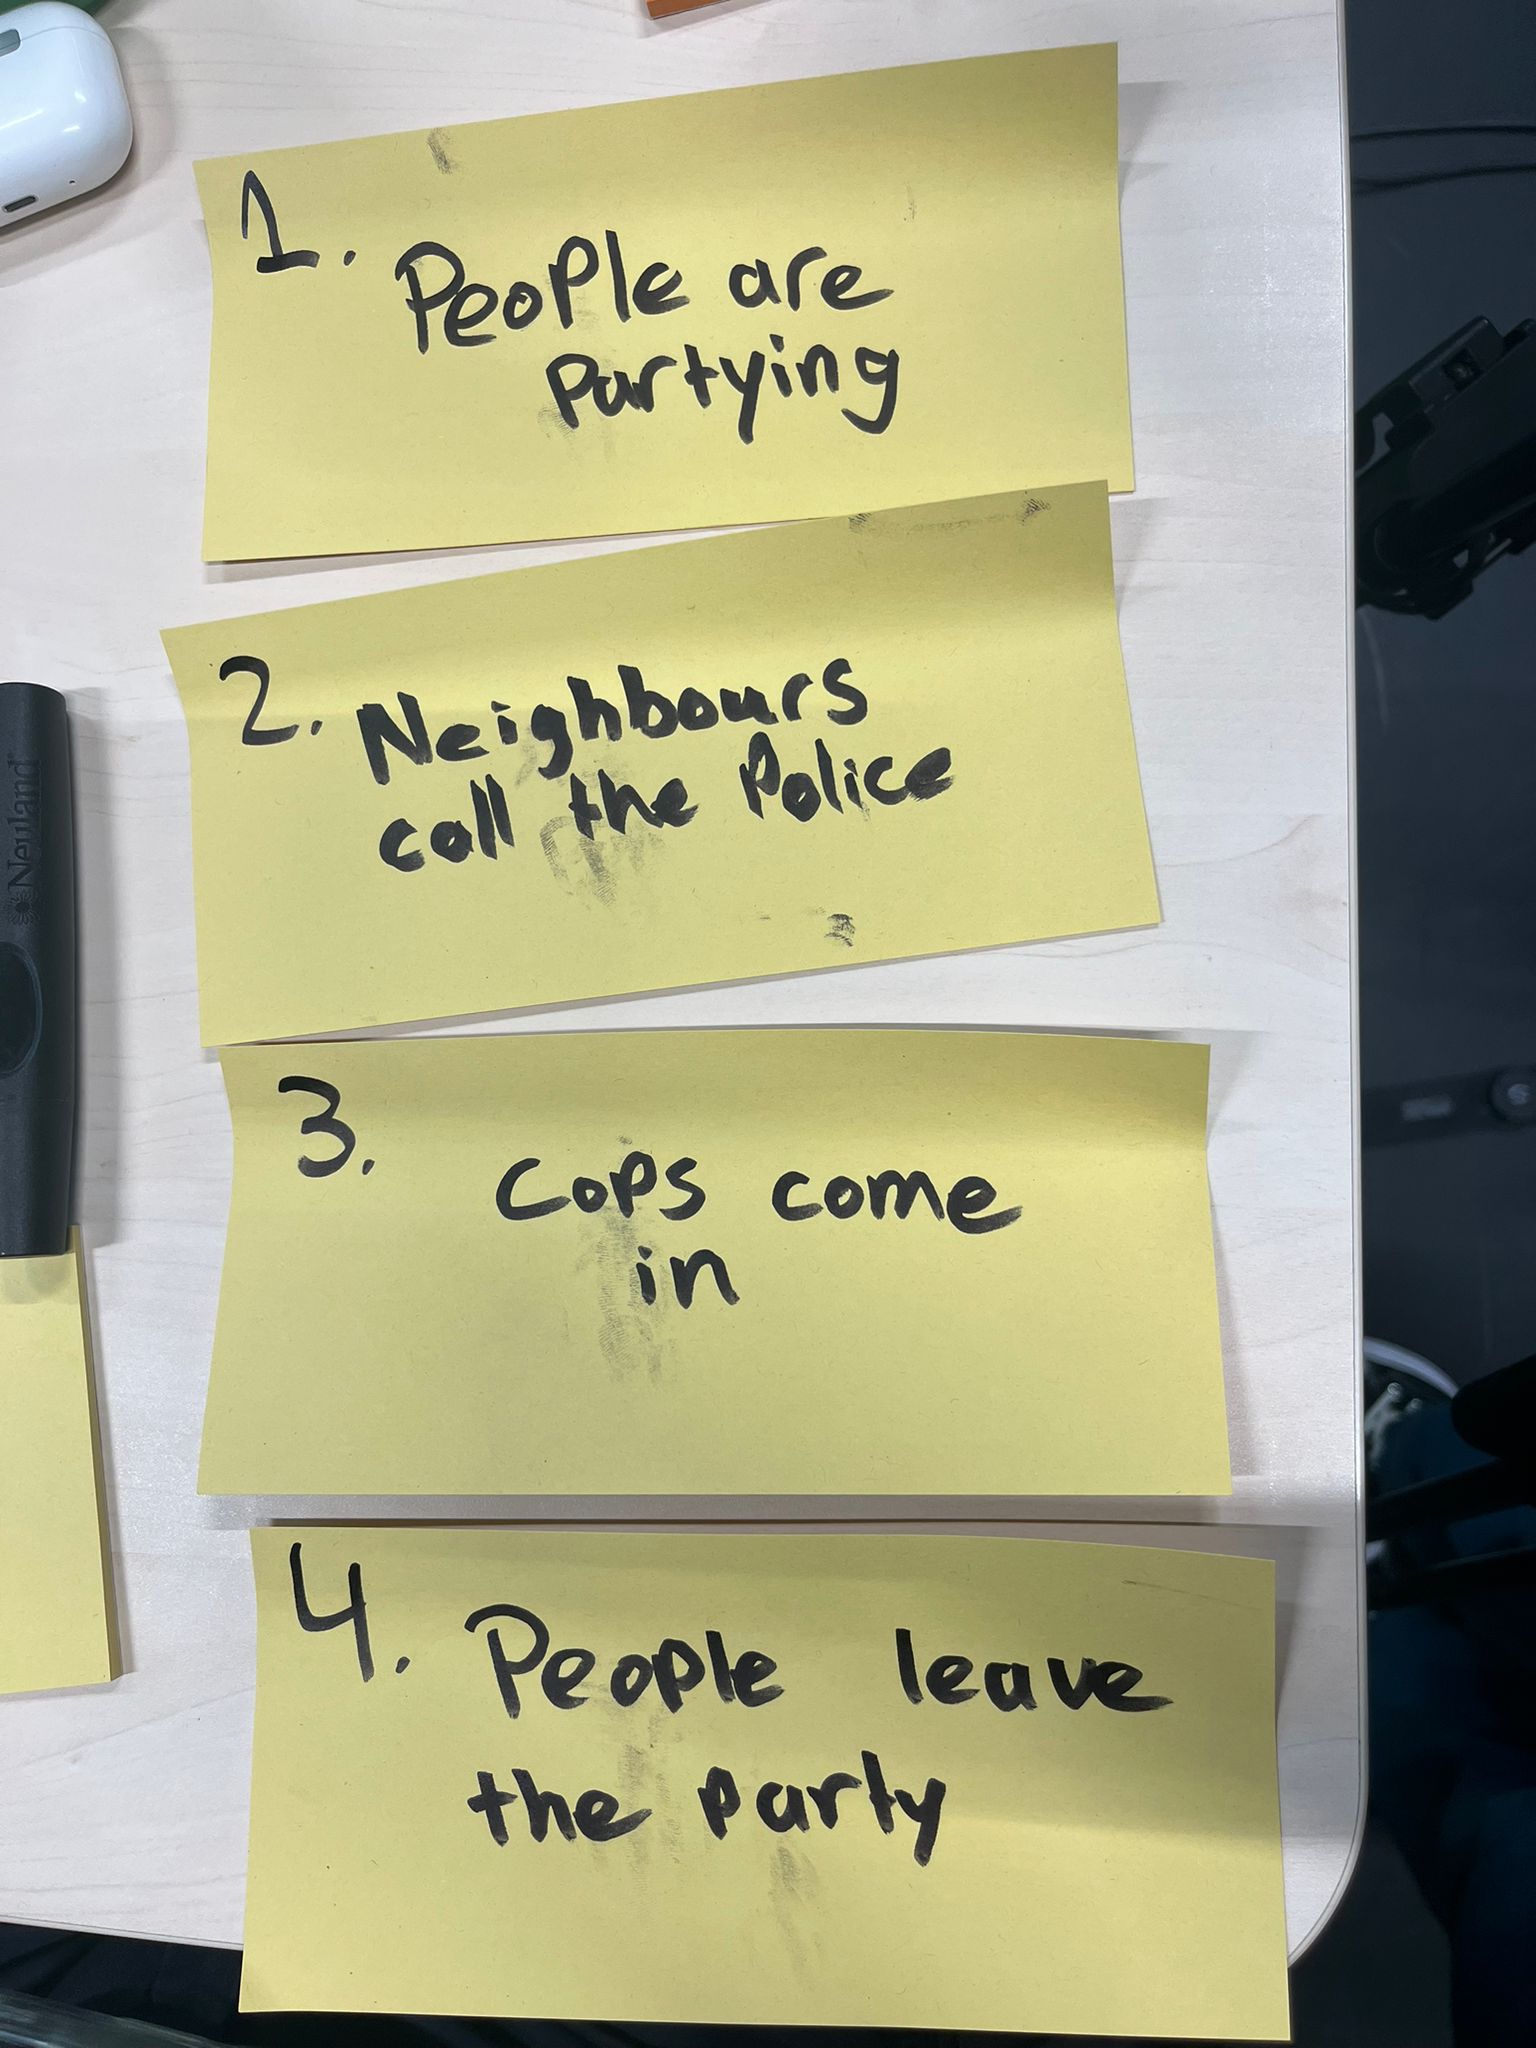 1. People are
partying
2. Neighbours
call the Police
3. Cops come
in
4. People leave
the party
Neuland